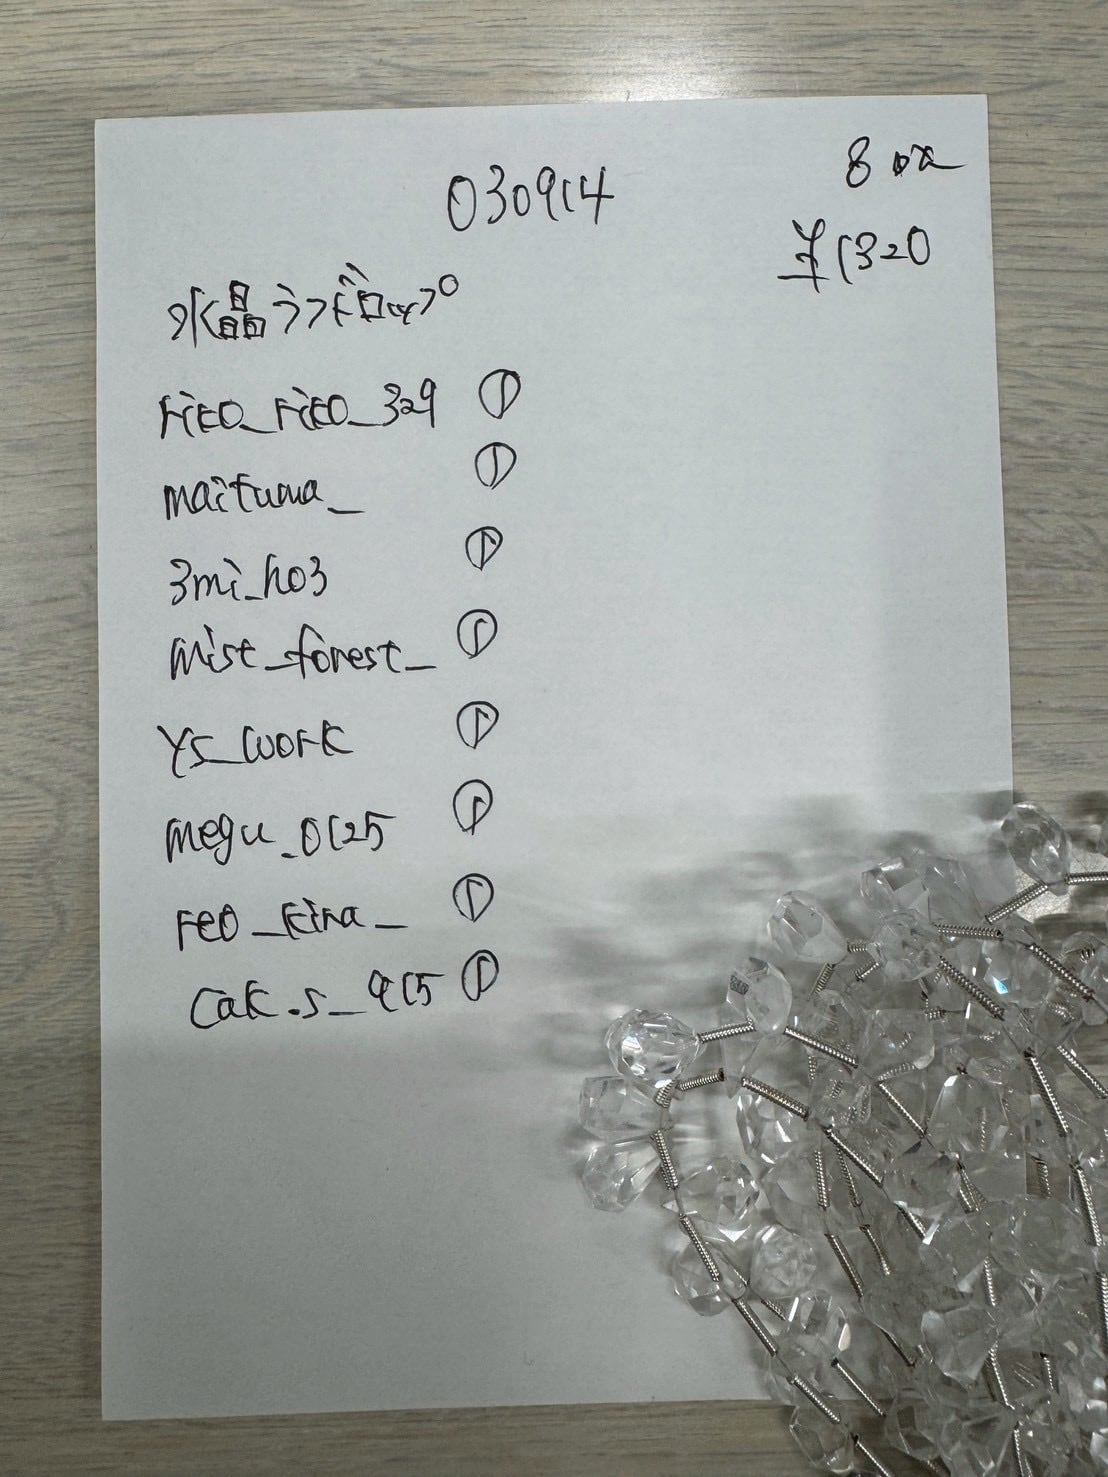 030914
8 pz
¥1320
水晶ラフドロップ
riko_riko_329 ①
maituma_ ①
3mi_ho3 ①
mist_forest_ ①
ys_work ①
megu_0125 ①
reo_kira_ ①
cak.s_915 ①